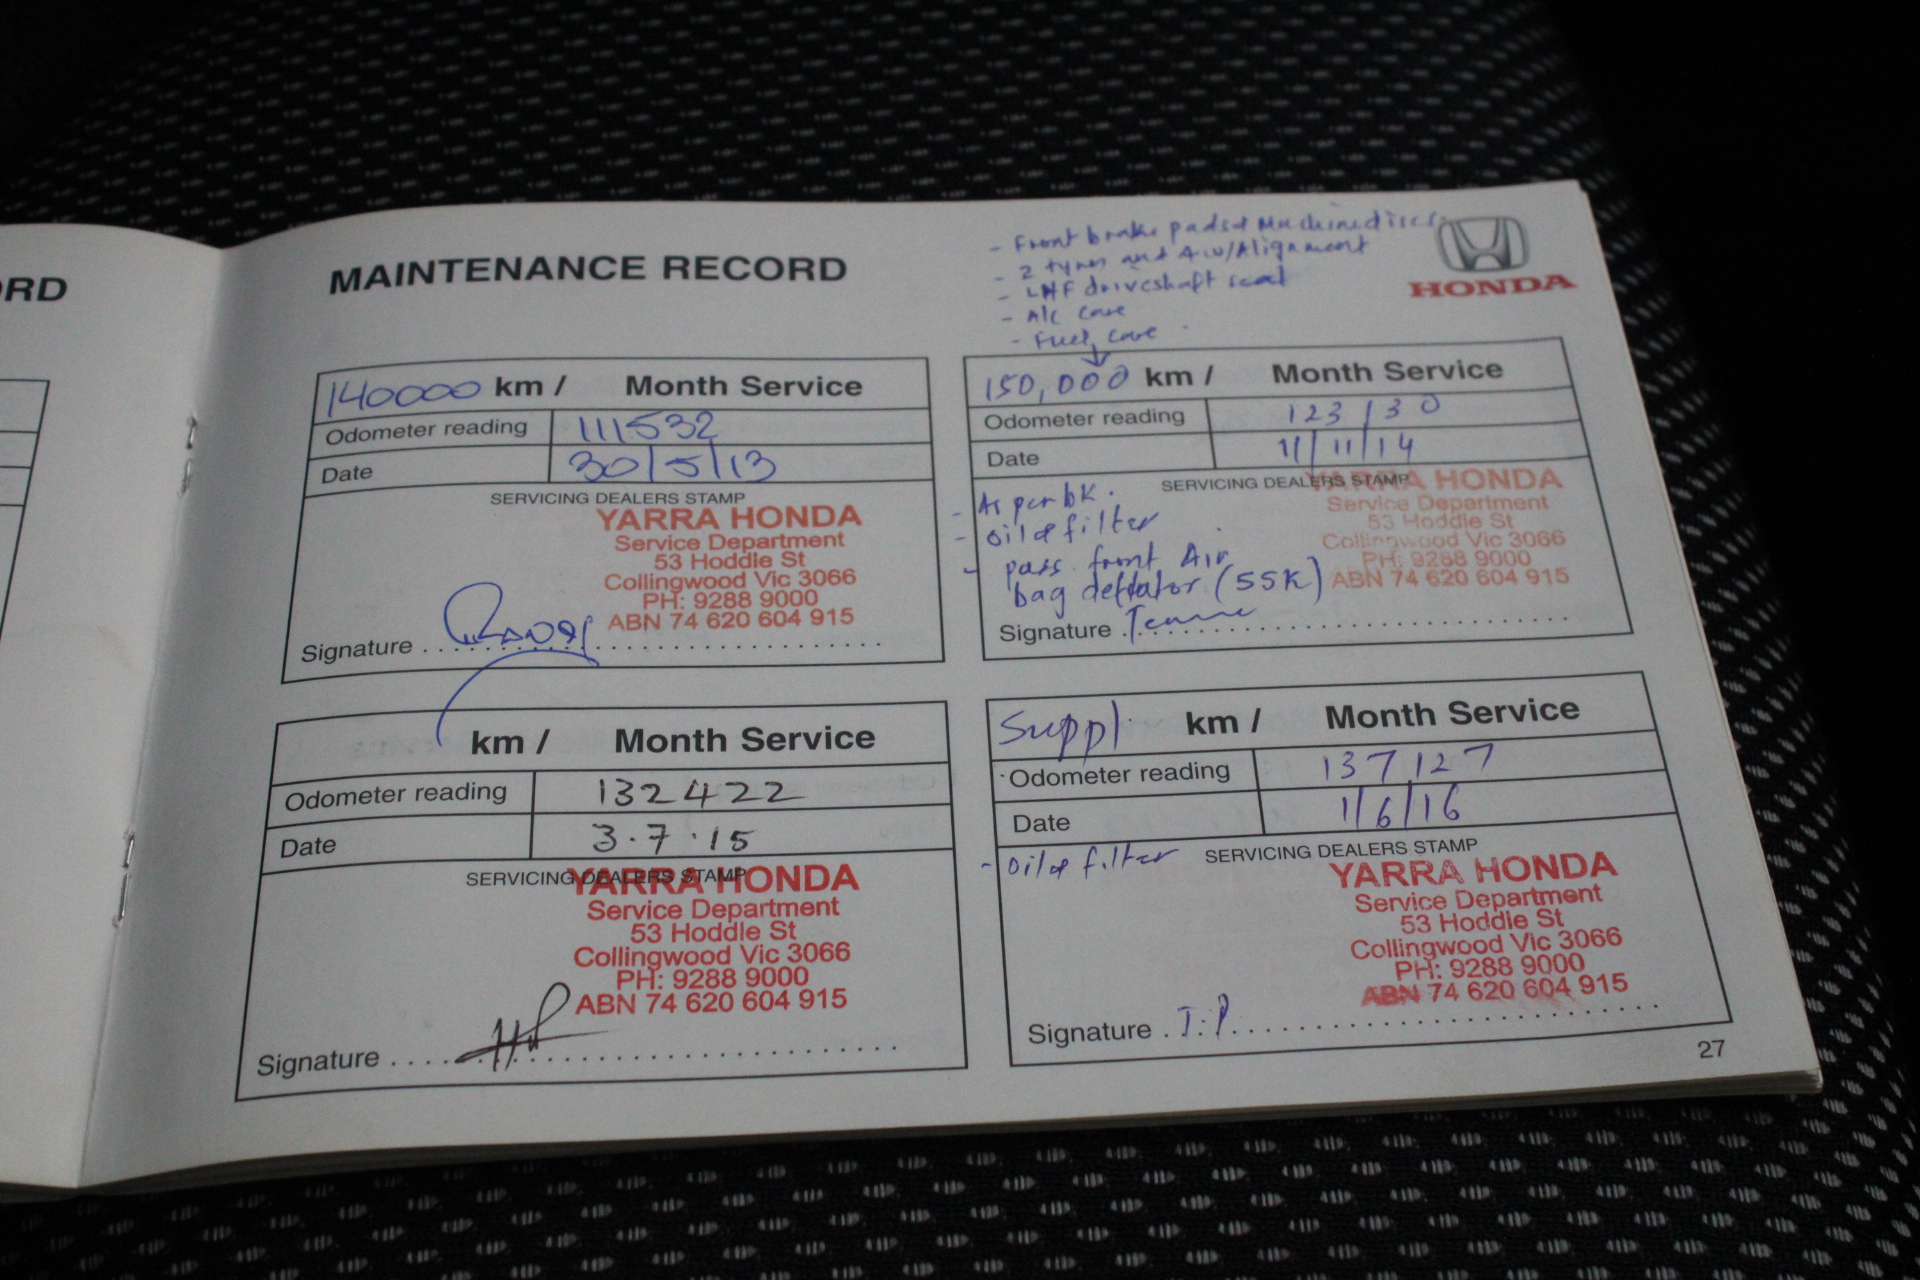 ORD
MAINTENANCE RECORD
- Front brake pads & Machine discs
- 2 tyres and 4w/Alignment
- LHF driveshaft seal
- A/c care
- Fuel care
HONDA
140000 km / Month Service
Odometer reading 111532
Date 30/5/13
SERVICING DEALERS STAMP
YARRA HONDA
Service Department
53 Hoddle St
Collingwood Vic 3066
PH: 9288 9000
ABN 74 620 604 915
Signature
150,000 km / Month Service
Odometer reading 123130
Date 11/11/14
SERVICING DEALERS STAMP
YARRA HONDA
Service Department
53 Hoddle St
Collingwood Vic 3066
PH: 9288 9000
ABN 74 620 604 915
- As per bk.
- oil & filter
- pass. front Air
bag deflator (55K)
Signature
km / Month Service
Odometer reading 132422
Date 3.7.15
SERVICING DEALERS STAMP
YARRA HONDA
Service Department
53 Hoddle St
Collingwood Vic 3066
PH: 9288 9000
ABN 74 620 604 915
Signature
Suppl. km / Month Service
Odometer reading 137127
Date 1/6/16
- oil & filter
SERVICING DEALERS STAMP
YARRA HONDA
Service Department
53 Hoddle St
Collingwood Vic 3066
PH: 9288 9000
ABN 74 620 604 915
Signature J.P
27